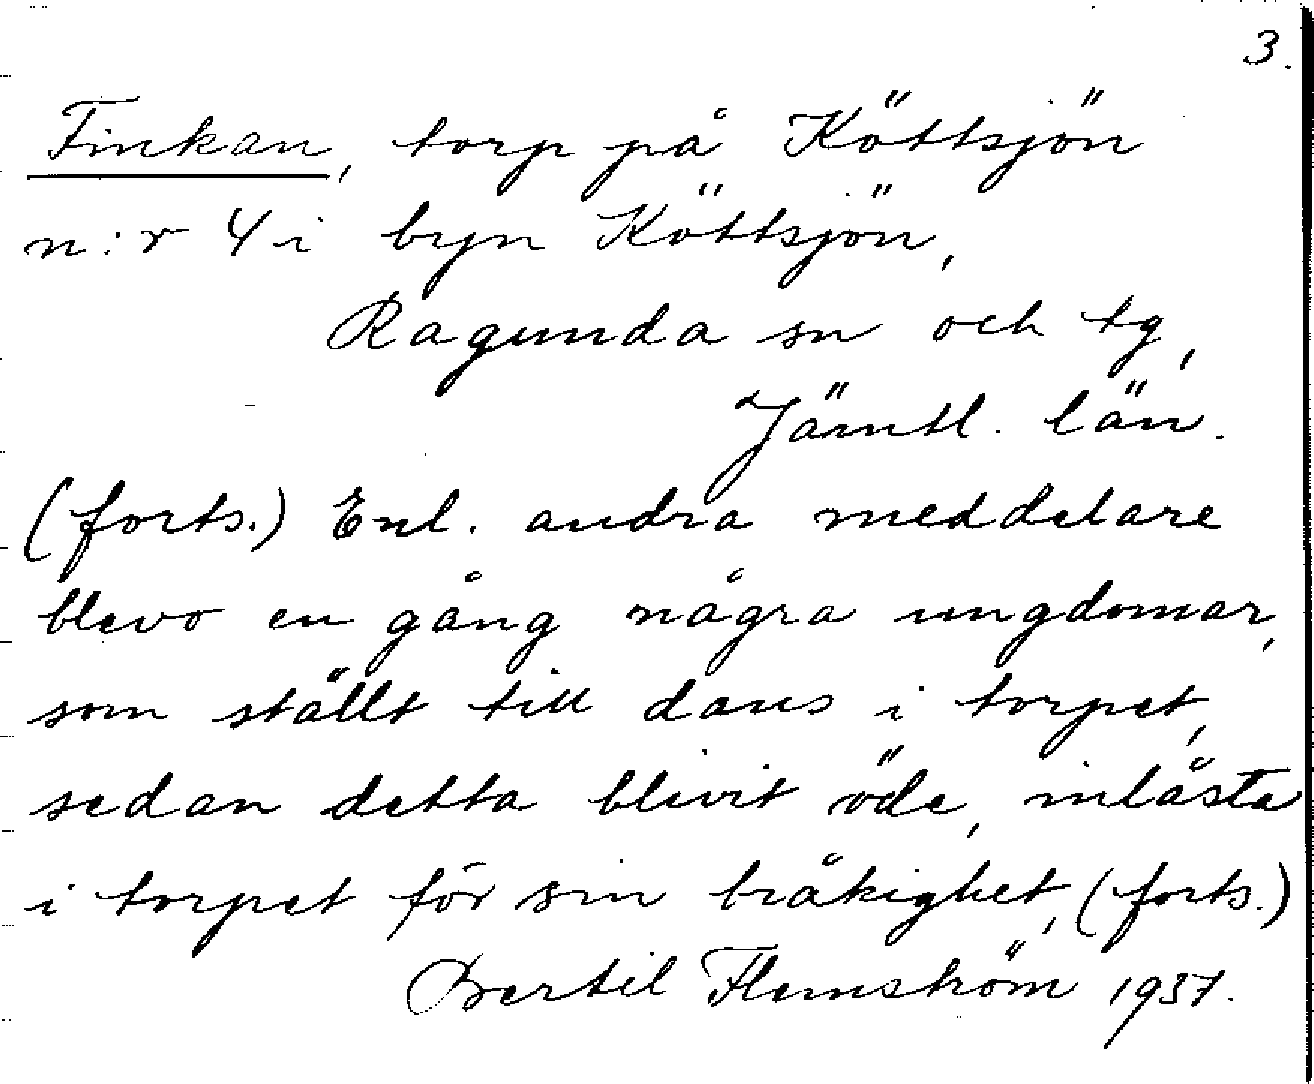 3.
Finkan, torp på Köttsjön
n:r 4 i byn Köttsjön,
Ragunda sn och tg,
Jämtl. län.
(forts.) Enl. andra meddelare
blevo en gång några ungdomar,
som ställt till dans i torpet,
sedan detta blivit öde, inlåsta
i torpet för sin bråkighet, (forts.)
Bertil Flemström 1937.